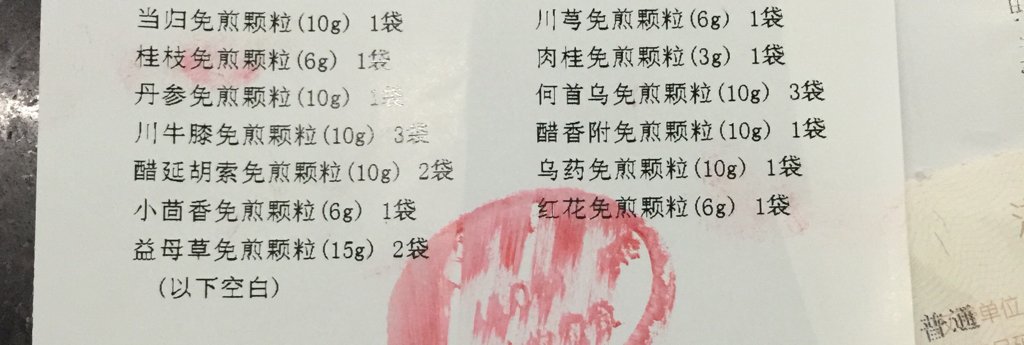 当归免煎颗粒(10g) 1袋 川芎免煎颗粒(6g) 1袋
桂枝免煎颗粒(6g) 1袋 肉桂免煎颗粒(3g) 1袋
丹参免煎颗粒(10g) 1袋 何首乌免煎颗粒(10g) 3袋
川牛膝免煎颗粒(10g) 3袋 醋香附免煎颗粒(10g) 1袋
醋延胡索免煎颗粒(10g) 2袋 乌药免煎颗粒(10g) 1袋
小茴香免煎颗粒(6g) 1袋 红花免煎颗粒(6g) 1袋
益母草免煎颗粒(15g) 2袋
(以下空白)
普通
单位